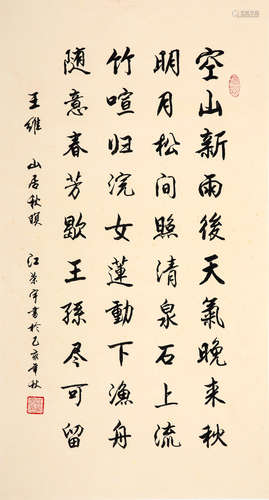 空山新雨後天氣晚来秋
明月松间照清泉石上流
竹喧归浣女蓮動下漁舟
随意春芳歇王孫尽可留
王維 山居秋暝